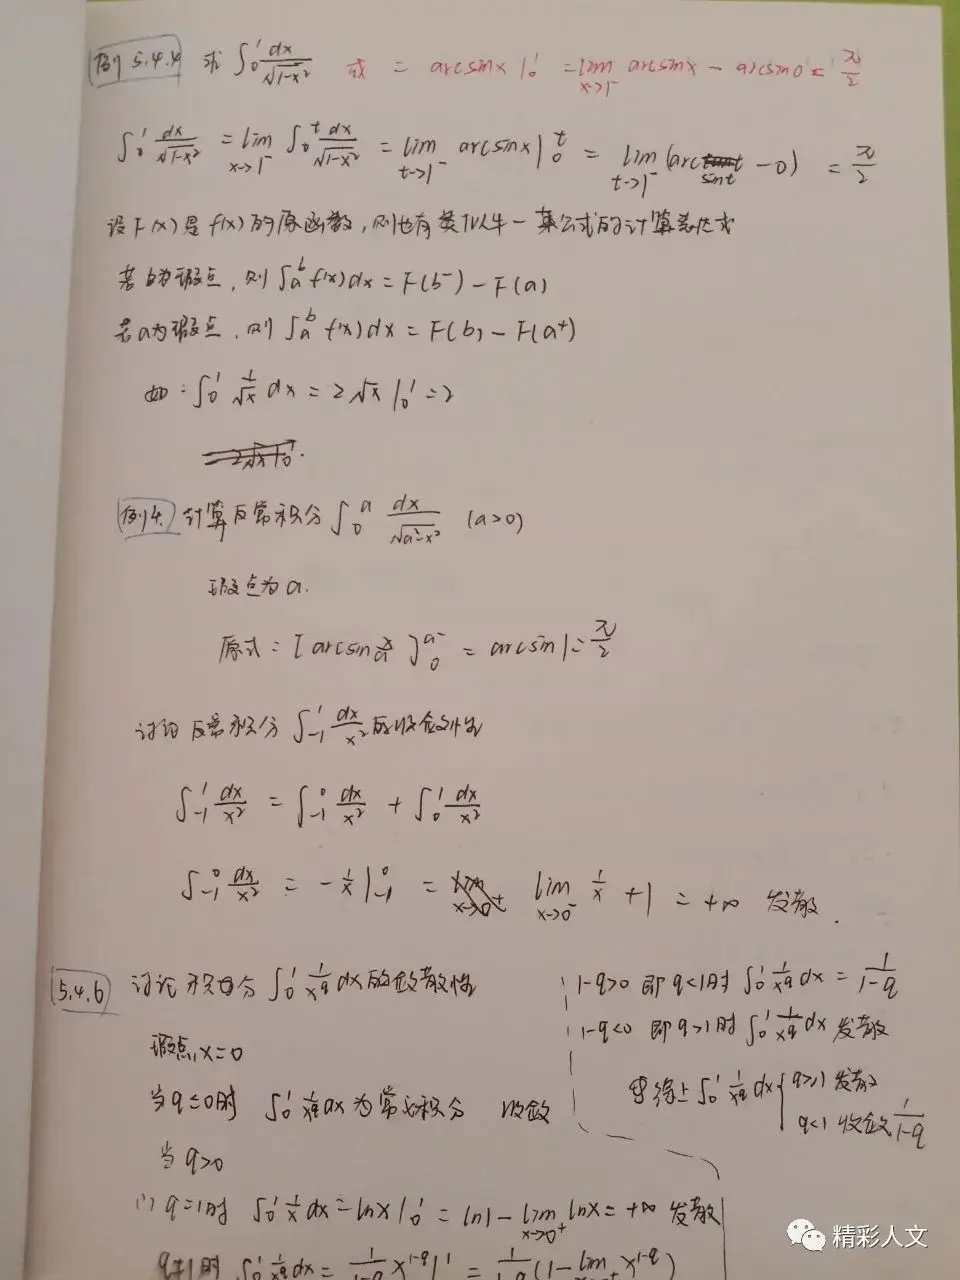 例5.4.4 求 ∫₀¹ dx/√(1-x²) 或 = arcsinx |₀¹ = lim x→1⁻ arcsinx - arcsin0 = π/2
∫₀¹ dx/√(1-x²) = lim x→1⁻ ∫₀ᵗ dx/√(1-x²) = lim t→1⁻ arcsinx |₀ᵗ = lim t→1⁻ (arcsint - 0) = π/2
设F(x)是f(x)的原函数,则也有类似牛-莱公式的计算表达式
若b为瑕点,则 ∫ₐᵇ f(x)dx = F(b⁻) - F(a)
若a为瑕点,则 ∫ₐᵇ f(x)dx = F(b) - F(a⁺)
如:∫₀¹ 1/√x dx = 2√x |₀¹ = 2
例4. 计算反常积分 ∫₀ᵃ dx/√(a²-x²) (a>0)
瑕点为a.
原式 = [arcsin x/a]₀^(a⁻) = arcsin1 = π/2
讨论反常积分 ∫₋₁¹ dx/x² 的收敛性
∫₋₁¹ dx/x² = ∫₋₁⁰ dx/x² + ∫₀¹ dx/x²
∫₋₁⁰ dx/x² = -1/x |₋₁⁰ = lim x→0⁻ 1/x + 1 = +∞ 发散.
5.4.6 讨论积分 ∫₀¹ 1/x^q dx 的敛散性
瑕点,x=0
当q≤0时 ∫₀¹ 1/x^q dx 为常义积分 收敛
当q>0
(1) q=1时 ∫₀¹ 1/x dx = lnx |₀¹ = ln1 - lim x→0⁺ lnx = +∞ 发散
q≠1时 ∫₀¹ 1/x^q dx = 1/(1-q) x^(1-q) |¹ = 1/(1-q) (1 - lim x^(1-q))
1-q>0 即q<1时 ∫₀¹ 1/x^q dx = 1/(1-q)
1-q<0 即q>1时 ∫₀¹ 1/x^q dx 发散
综上 ∫₀¹ 1/x^q dx { q≥1 发散
q<1 收敛 1/(1-q)
精彩人文